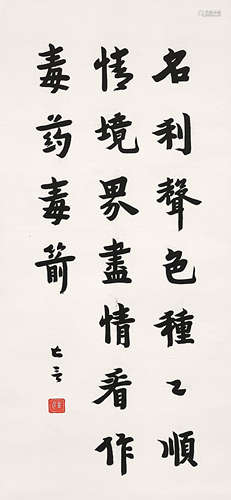 名利聲色種〻順
情境界盡情看作
毒药毒箭